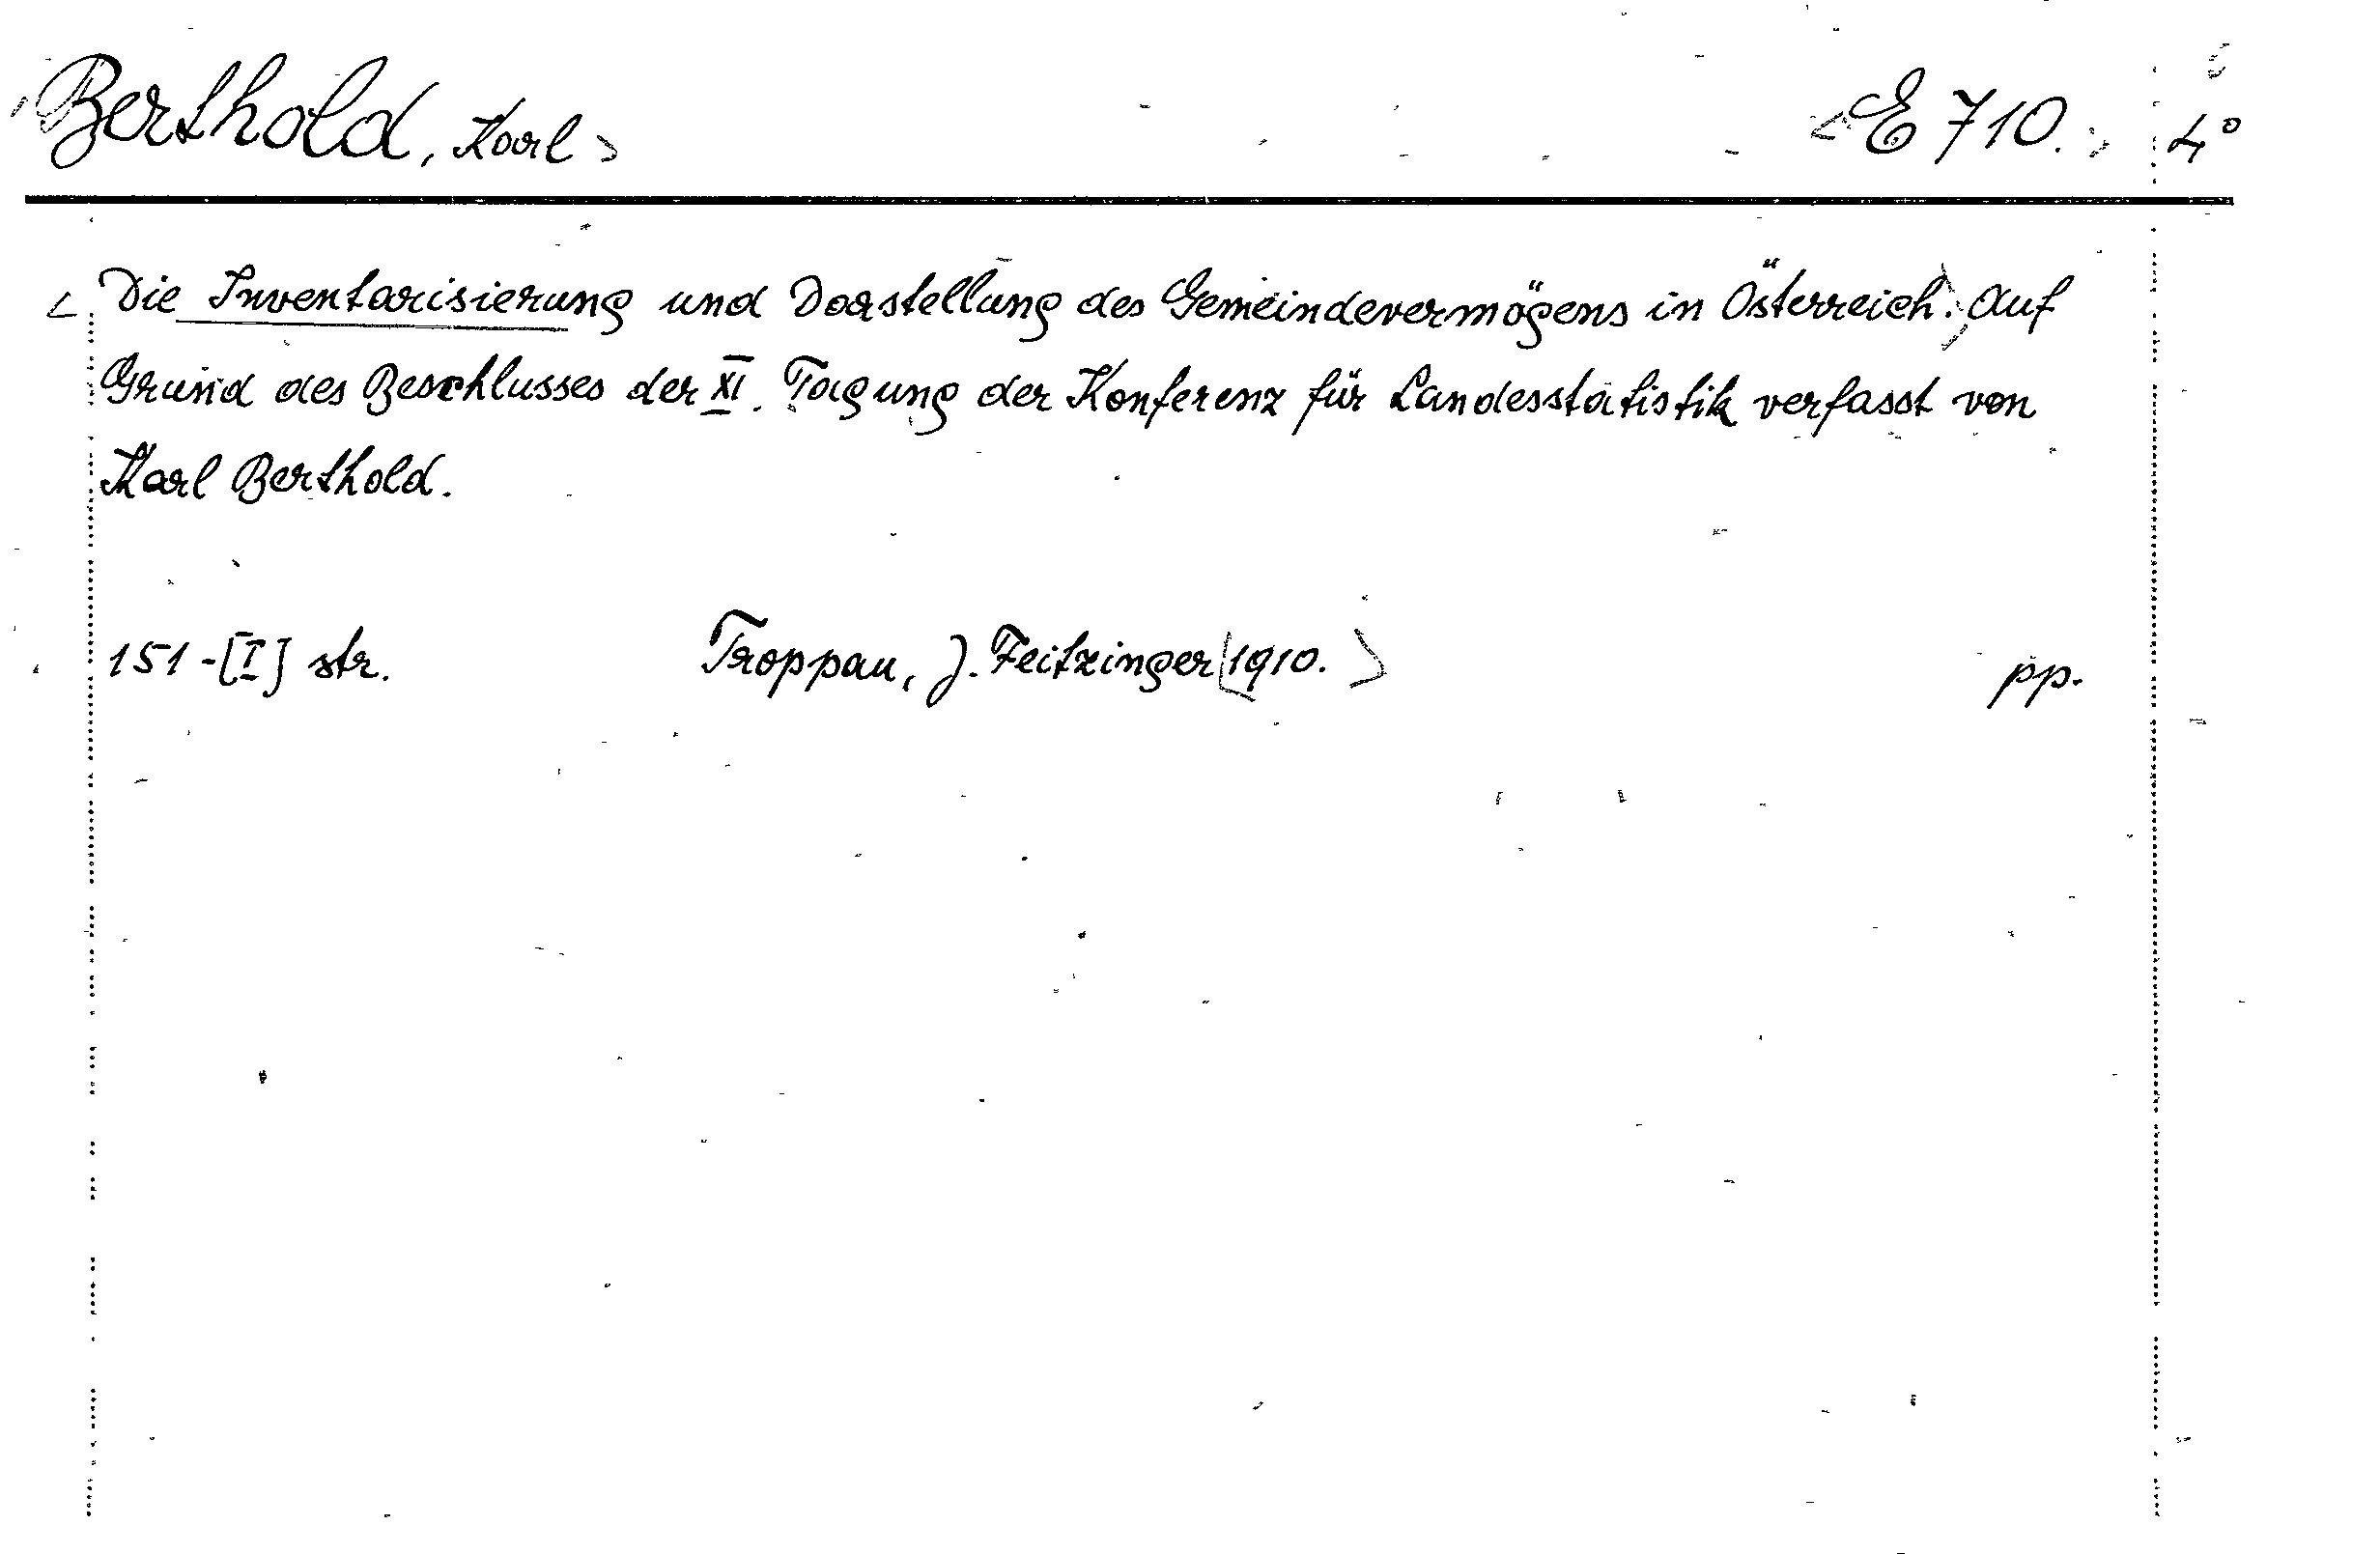 Berthold, Karl E 710. 4°
Die Inventarisierung und Darstellung des Gemeindevermögens in Österreich. Auf
Grund des Beschlusses der XI. Tagung der Konferenz für Landesstatistik verfasst von
Karl Berthold.
151-[I] str. Troppau, J. Feitzinger 1910. pp.